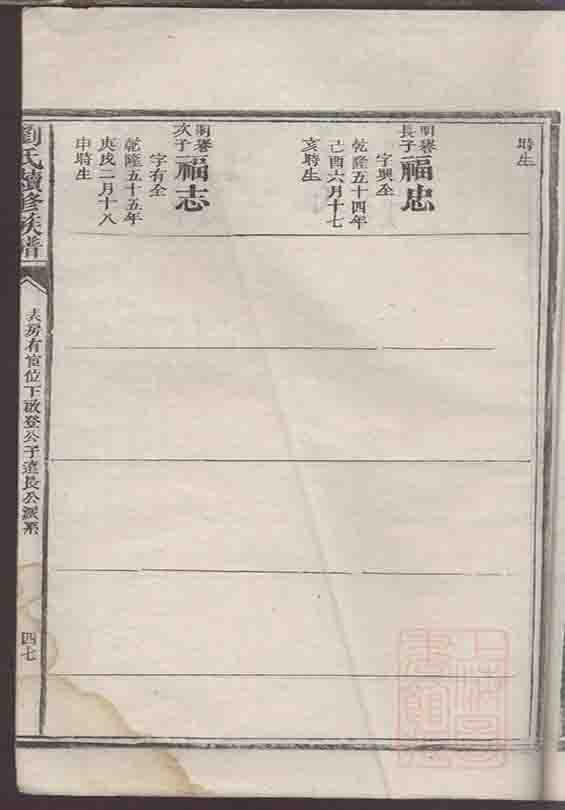 時生
明馨
長子
福忠
字興全
乾隆五十四年
己酉六月十七
亥時生
明馨
次子
福志
字有全
乾隆五十五年
庚戌二月十八
申時生
劉氏續修族譜
房有富位下啟登公子達長公派系
四七